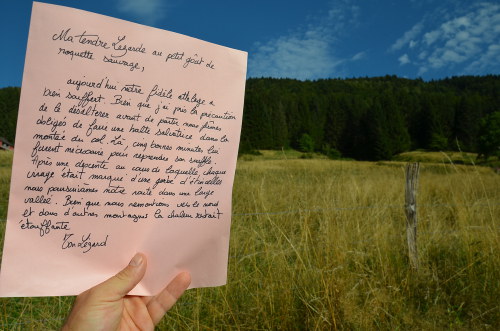 Ma tendre Lézarde au petit goût de
roquette sauvage,
aujourd'hui notre fidèle attelage a
bien souffert. Bien que j'ai pris la précaution
de le désaltérer avant de partir nous fûmes
obligés de faire une halte salvatrice dans la
montée du col. Là, cinq bonnes minutes lui
furent nécessaires pour reprendre son souffle.
Après une descente au cours de laquelle chaque
virage était marqué d'une gerbe d'étincelles
nous poursuivîmes notre route dans une large
vallée. Bien que nous remontions vers le nord
et dans d'autres montagnes la chaleur restait
étouffante.
Ton Lézard